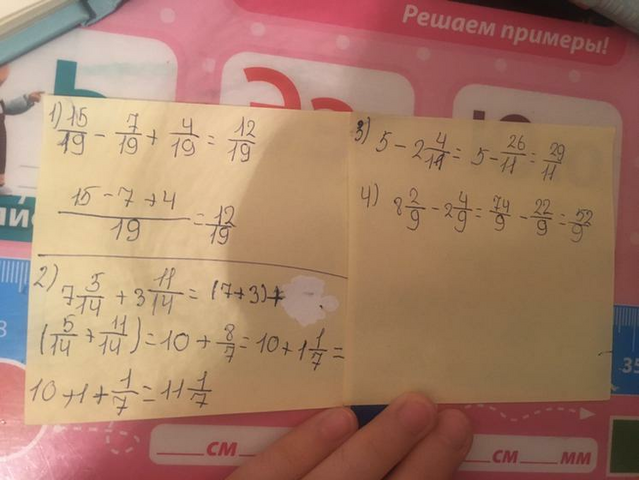 Решаем примеры!
1) 15/19 - 7/19 + 4/19 = 12/19
(15 - 7 + 4)/19 = 12/19
2) 7 5/14 + 3 11/14 = (7+3)+
(5/14 + 11/14) = 10 + 8/7 = 10 + 1 1/7 =
10 + 1 + 1/7 = 11 1/7
3) 5 - 2 4/11 = 5 - 26/11 = 29/11
4) 8 2/9 - 2 4/9 = 74/9 - 22/9 = 52/9
35
см
см мм